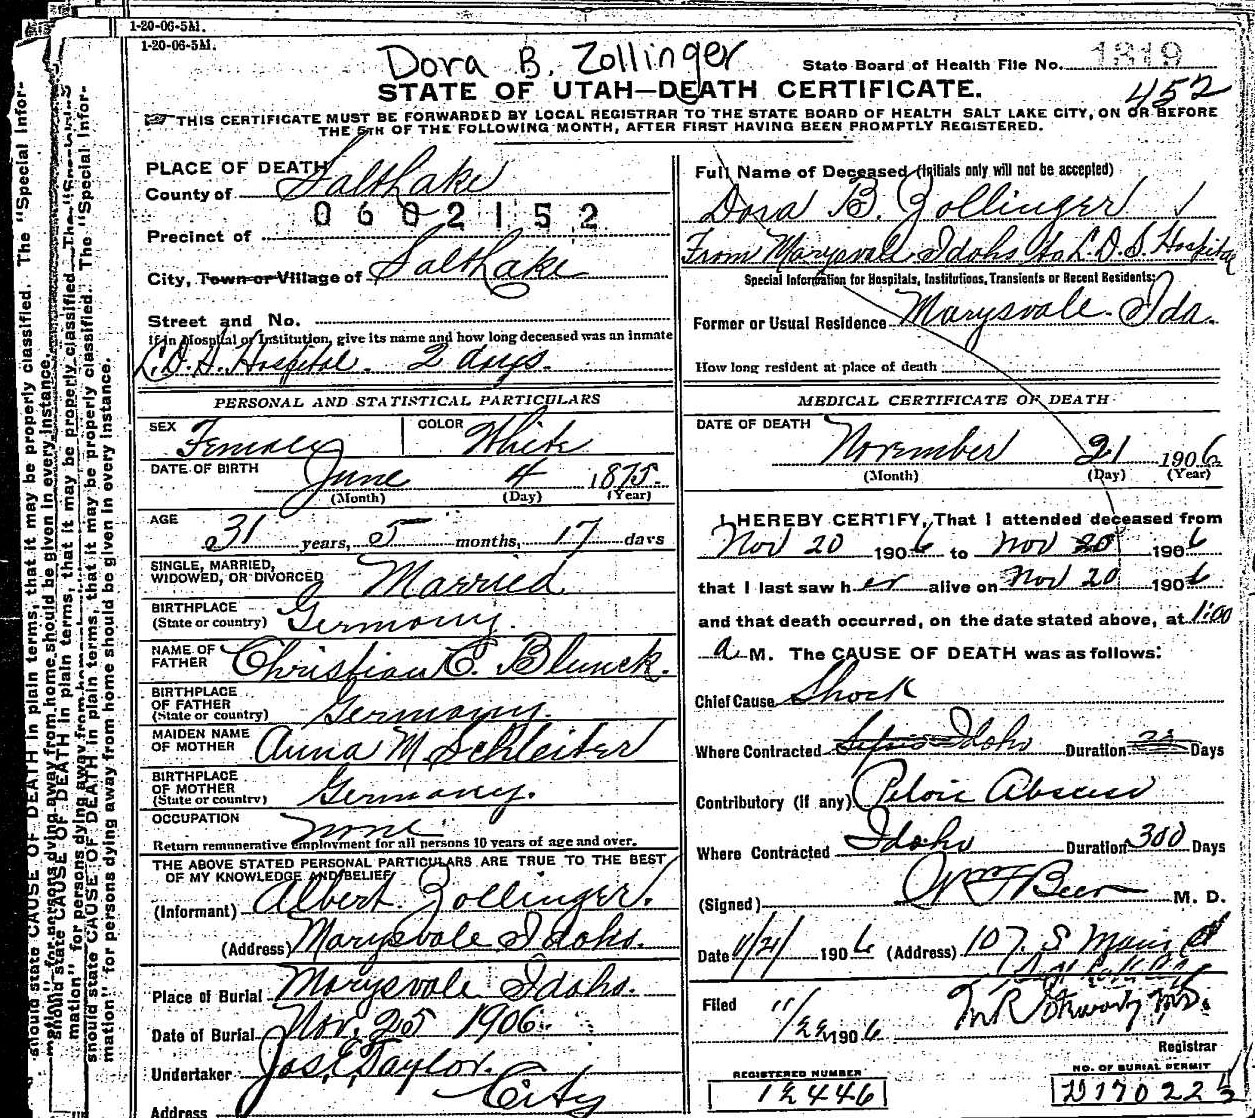 1-20-06-5M.
1-20-06-5M.
Dora B. Zollinger
State Board of Health File No. 1319
452
STATE OF UTAH—DEATH CERTIFICATE.
THIS CERTIFICATE MUST BE FORWARDED BY LOCAL REGISTRAR TO THE STATE BOARD OF HEALTH SALT LAKE CITY, ON OR BEFORE
THE 5TH OF THE FOLLOWING MONTH, AFTER FIRST HAVING BEEN PROMPTLY REGISTERED.
PLACE OF DEATH
County of Salt Lake
0602152
Precinct of
City, Town or Village of Salt Lake
Street and No.
If in Hospital or Institution, give its name and how long deceased was an inmate
L.D.S. Hospital. 2 days.
PERSONAL AND STATISTICAL PARTICULARS
SEX Female COLOR White
DATE OF BIRTH June 4 1875.
(Month) (Day) (Year)
AGE 31 years, 5 months, 17 days
SINGLE, MARRIED,
WIDOWED, OR DIVORCED Married
BIRTHPLACE
(State or country) Germany.
NAME OF
FATHER Christian C. Blunck.
BIRTHPLACE
OF FATHER
(State or country) Germany.
MAIDEN NAME
OF MOTHER Anna M. Schleiter
BIRTHPLACE
OF MOTHER
(State or country) Germany.
OCCUPATION none
Return remunerative employment for all persons 10 years of age and over.
THE ABOVE STATED PERSONAL PARTICULARS ARE TRUE TO THE BEST
OF MY KNOWLEDGE AND BELIEF
(Informant) Albert Zollinger.
(Address) Marysvale Idaho.
Place of Burial Marysvale Idaho.
Date of Burial Nov. 25 1906.
Undertaker Jos. E. Taylor.
Address City
Full Name of Deceased (Initials only will not be accepted)
Dora B. Zollinger
From Marysvale Idaho to L.D.S. Hospital
Special Information for Hospitals, Institutions, Transients or Recent Residents:
Former or Usual Residence Marysvale. Ida.
How long resident at place of death
MEDICAL CERTIFICATE OF DEATH
DATE OF DEATH November 21 1906
(Month) (Day) (Year)
I HEREBY CERTIFY, That I attended deceased from
Nov 20 1906 to Nov 20 1906
that I last saw her alive on Nov 20 1906
and that death occurred, on the date stated above, at 1:00
a M. The CAUSE OF DEATH was as follows:
Chief Cause Shock
Where Contracted Idaho Duration Days
Contributory (If any) Pelvic Abscess
Where Contracted Idaho Duration 300 Days
(Signed) Wm F Beer M. D.
Date 11/21/ 1906 (Address) 107. S Main St
Filed 11/22 1906
Registrar
REGISTERED NUMBER
12446
NO. OF BURIAL PERMIT
should state CAUSE OF DEATH in plain terms, that it may be properly classified. The "Special Infor-
mation" for persons dying away from home should be given in every instance.
should state CAUSE OF DEATH in plain terms, that it may be properly classified. The "Special Infor-
mation" for persons dying away from home should be given in every instance.